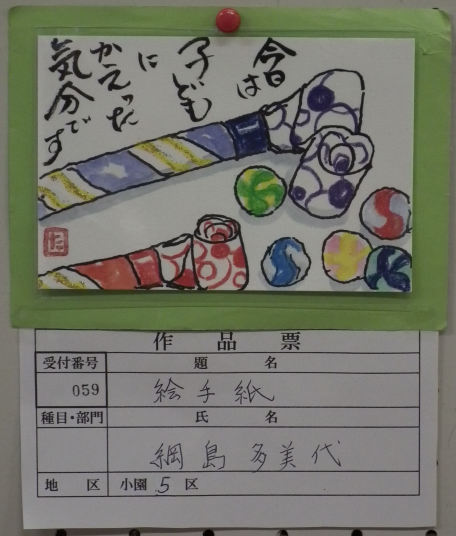 今日は
子ども
に
かえった
気分です
作品票
受付番号 題名
059 絵手紙
種目・部門 氏名
綱島多美代
地区 小園5区